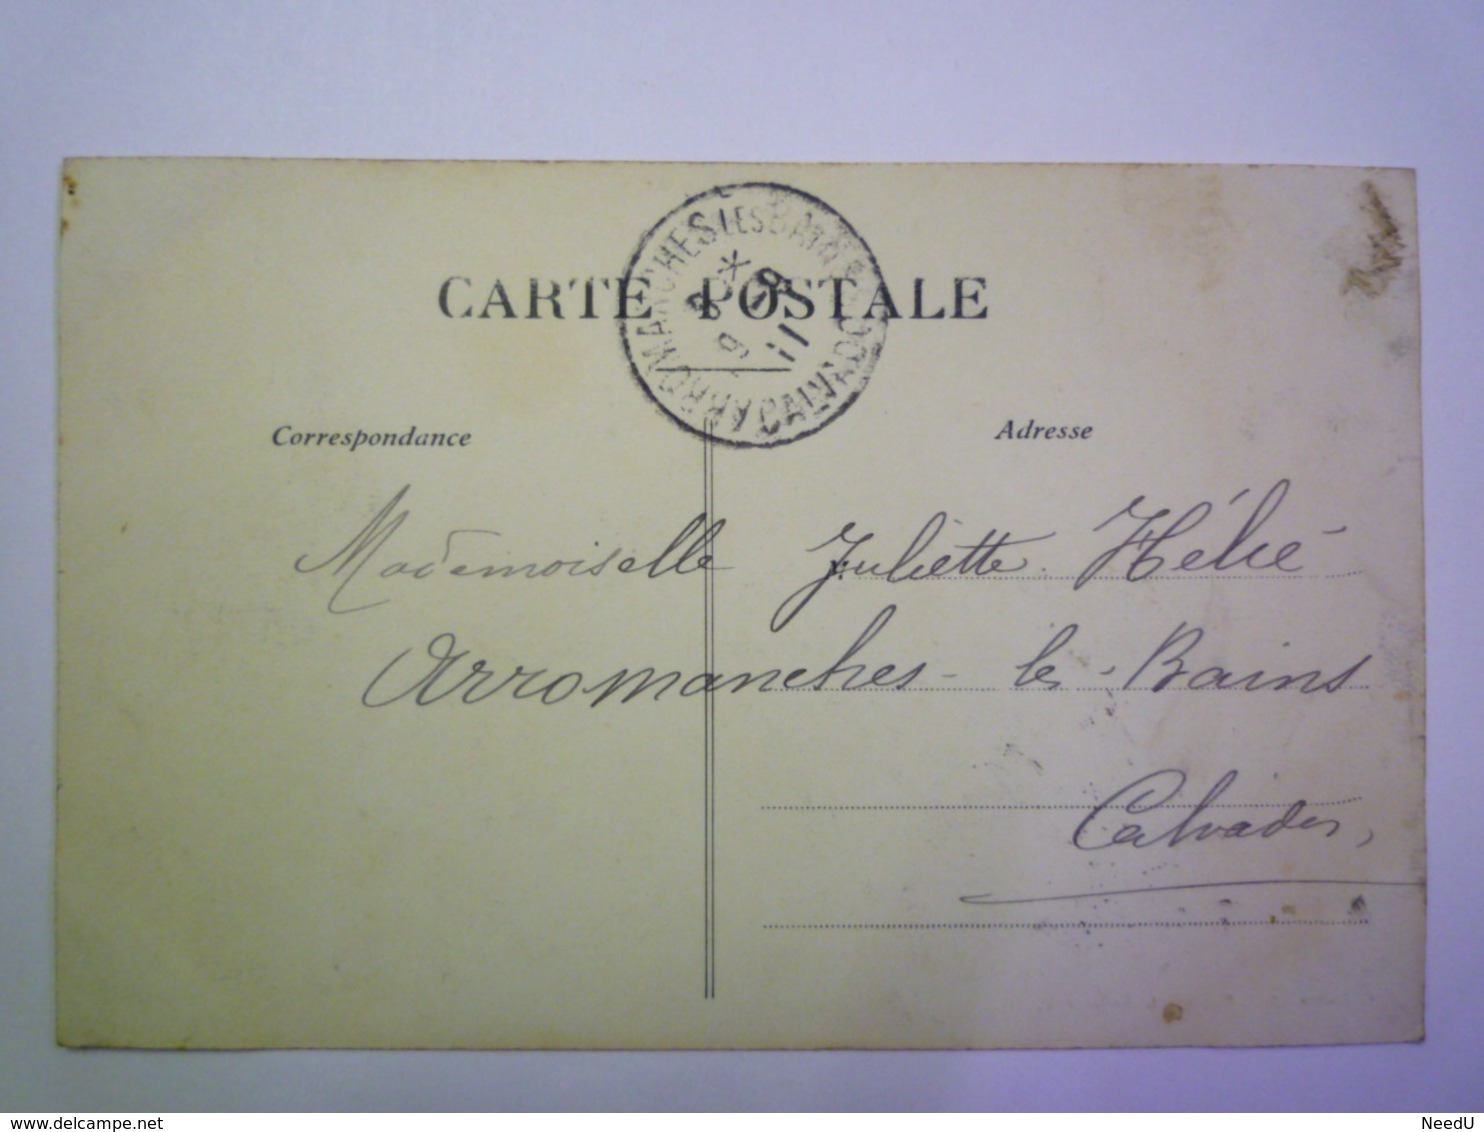 ARROMANCHES LES BAINS
CALVADOS
CARTE POSTALE
Correspondance
Adresse
Mademoiselle Juliette Hélié
Arromanches-les-Bains
Calvados,
delcampe.net
NeedU